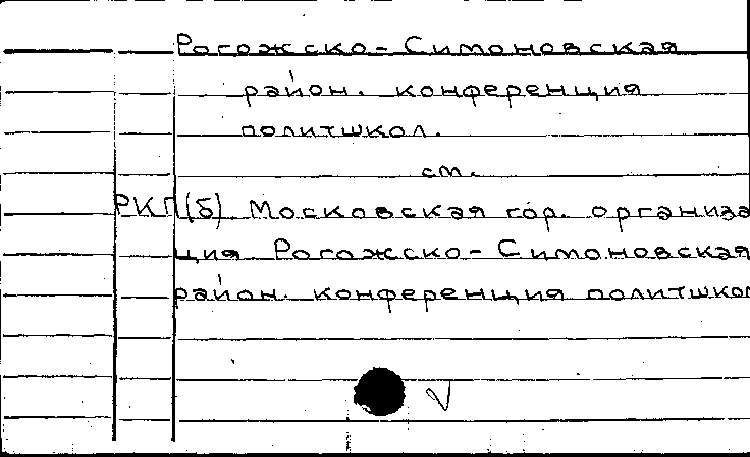 Рогожско-Симоновская
район. конференция
политшкол.
см.
РКП(б) Московская гор. организа
ция Рогожско-Симоновская
район. конференция политшкол
V